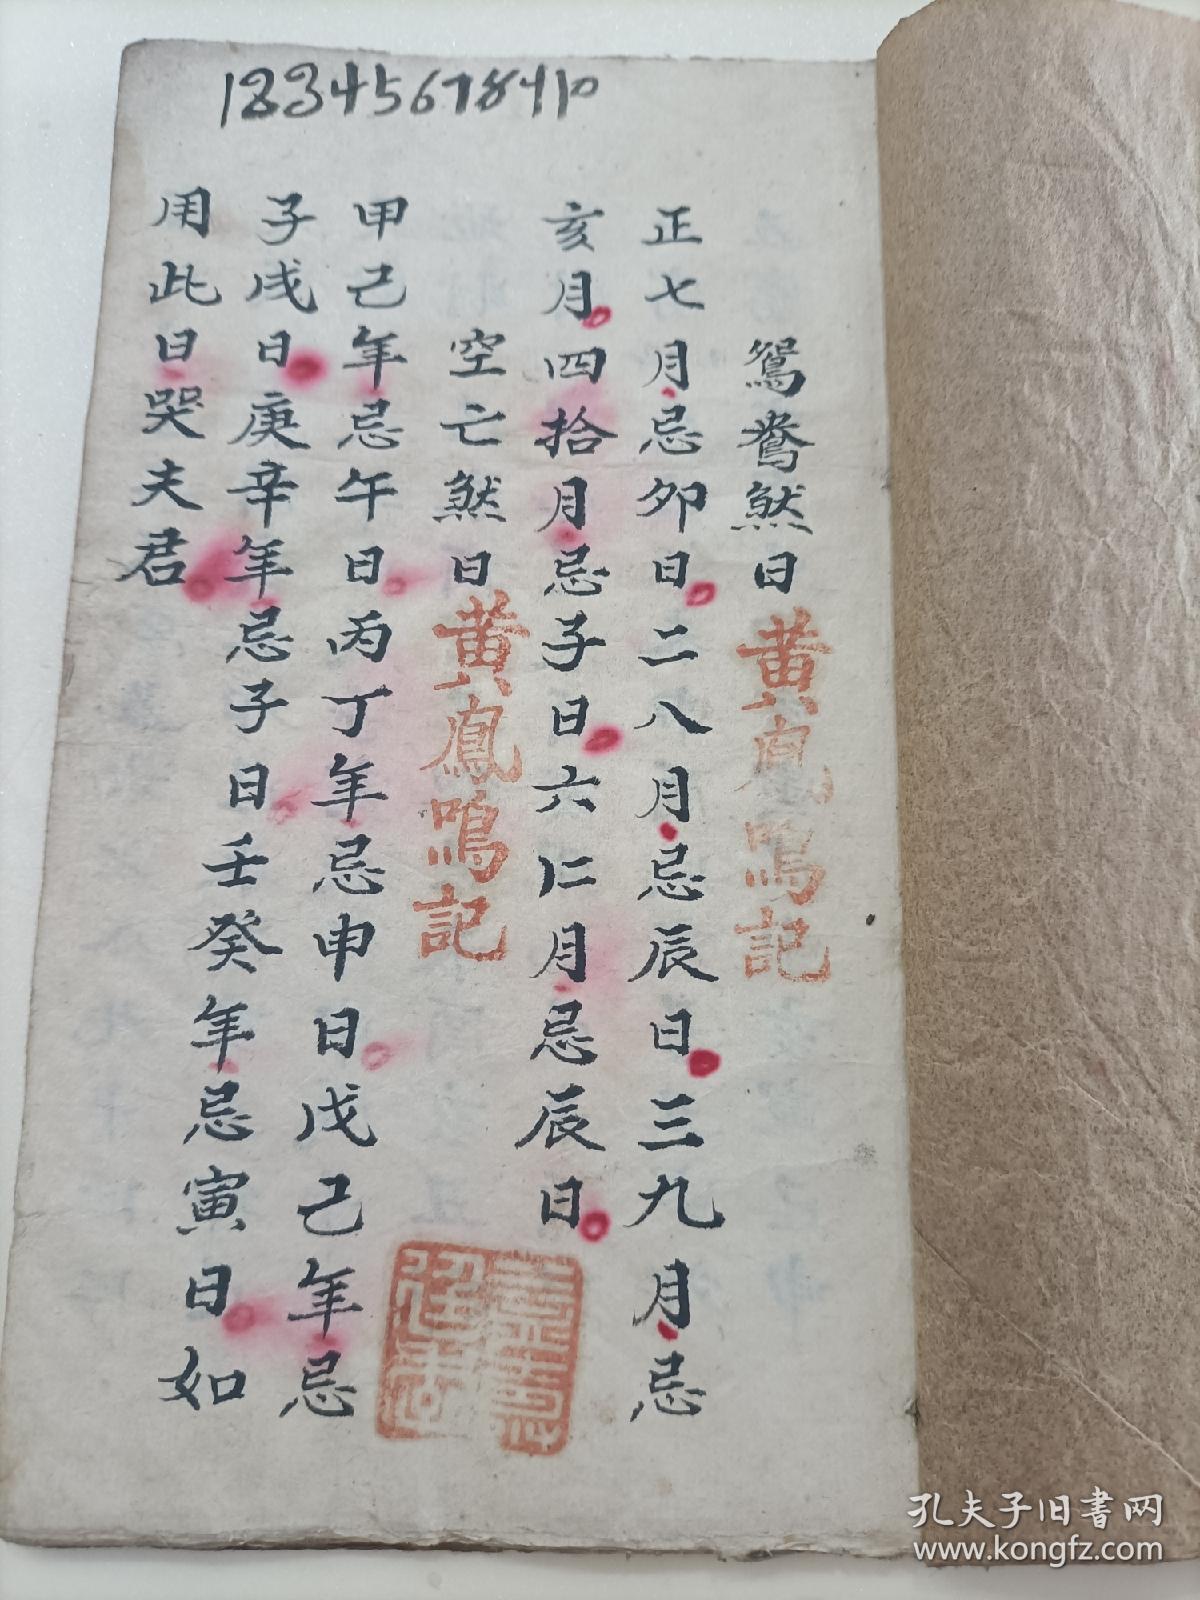 鴛鴦煞日 黄鳳鳴記
正七月忌卯日二八月忌辰日三九月忌
亥月四拾月忌子日六仁月忌辰日
空亡煞日 黄鳳鳴記
甲己年忌午日丙丁年忌申日戊己年忌
子戌日庚辛年忌子日壬癸年忌寅日如
用此日哭夫君
孔夫子旧书网
www.kongfz.com